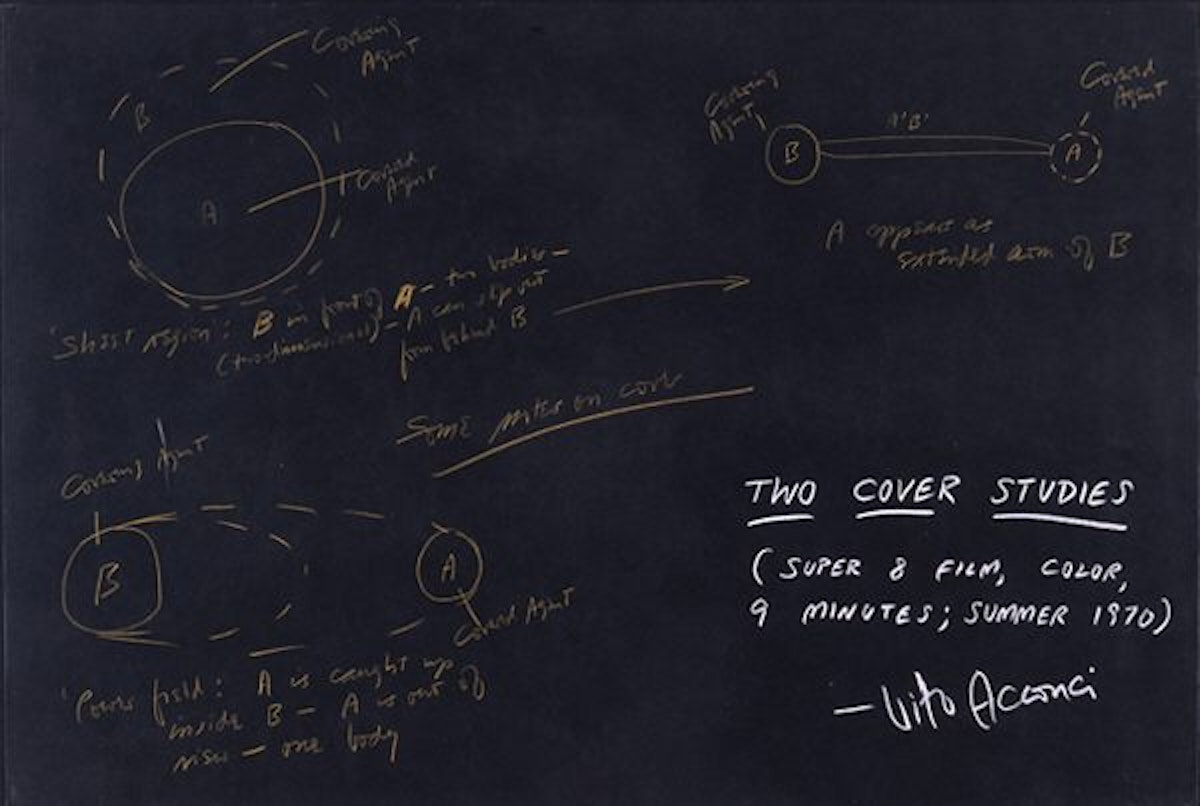 Covering
Agent
B
A
Covered
Agent
'Sheet region': B in front of A – two bodies –
(two-dimensional) – A can slip out
from behind B
Covering
Agent
B
A'B'
Covered
Agent
A
A appears as
extended arm of B
Some notes on cover
Covering Agent
B
A
Covered Agent
'Power field: A is caught up
inside B – A is out of
view – one body
TWO COVER STUDIES
(SUPER 8 FILM, COLOR,
9 MINUTES; SUMMER 1970)
— Vito Acconci